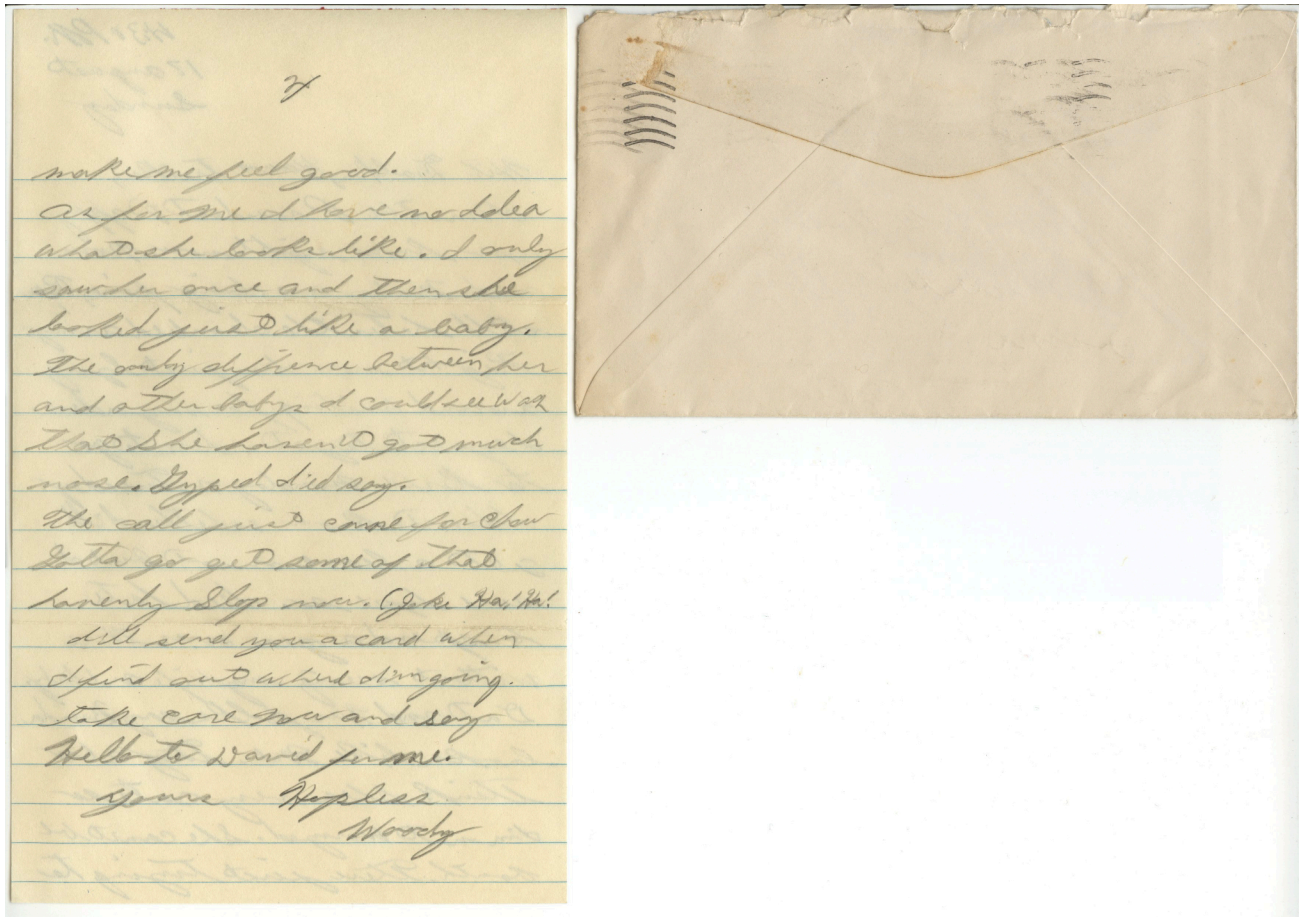 4
make me feel good.
As for me I have no Idea
what she looks like. I only
saw her once and then she
looked just like a baby.
The only diffrence between her
and other babys I could see was
that she haven't got much
nose. Gyped I'ed say.
The call just came for chow
Gotta go get some of that
havenly Slop now. (Joke Ha! Ha!
I'll send you a card when
I find out where I'm going.
take care now and say
Hello to David for me.
Yours Hopless
Woody